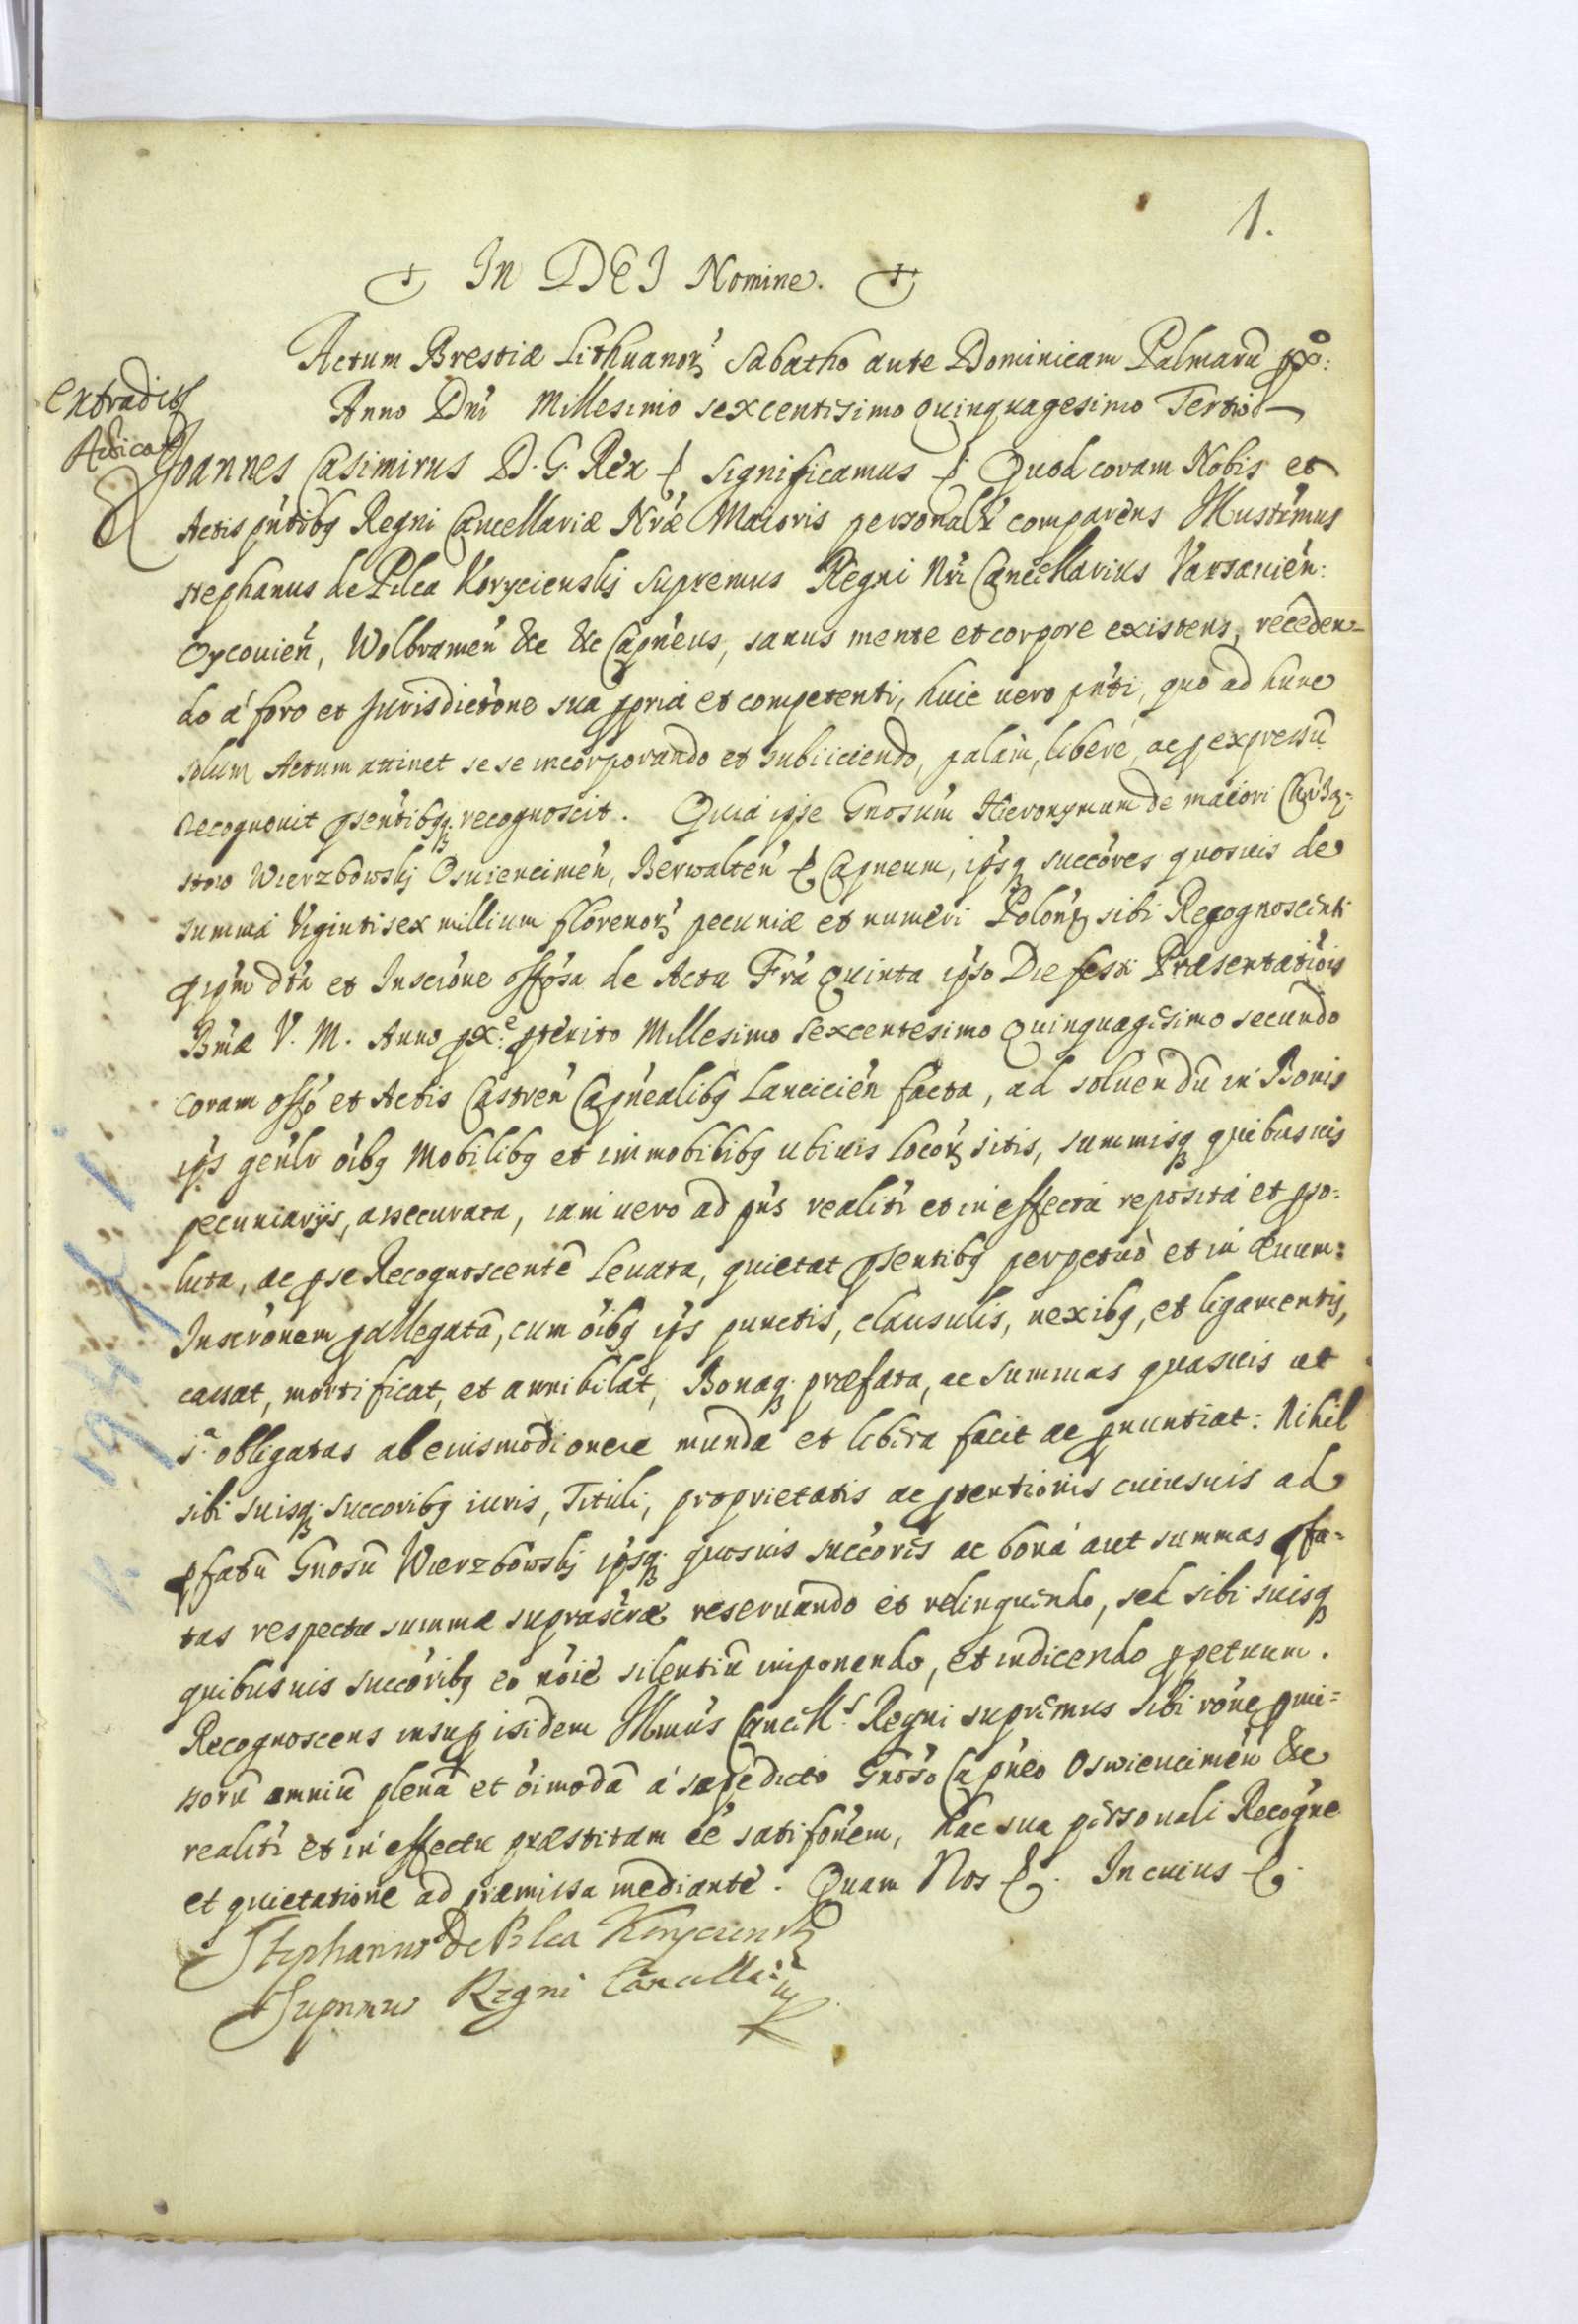 1.
In DEI Nomine.
Actum Brestiæ Lithuanorꝫ Sabatho ante Dominicam Palmarũ pxo:
Anno Dnĩ Millesimo sexcentisimo quinquagesimo Tertio
Extradit9
Joannes Casimirus D. G. Rex & significamus & Quod coram Nobis et
Actis pntibq Regni Cancellariæ Nræ Maioris personalr comparens Illustrimus
Stephanus de Pilca Koryciensky Supremus Regni Nri Cancellarius Varsauien:
Oycouien, Wolbramen &c &c Capneus, sanus mente et corpore existens, receden=
do a foro et Jurisdictone sua ppria et competenti, huic uero pnti, quo ad hunc
solum Actum attinet se se incorporando et subijciendo, palam, libere, ac p expressũ
recognouit psentibqq. recognoscit. Quia ipse Gnosum Hieronymum de maiori Chrzą=
stow Wierzbowsky Osuiencimen, Berwalten & Capneum, ipsq succores quosuis de
summa Viginti sex millium florenorꝫ pecuniæ et numeri Polon sibi Recognoscenti
p ipm dta et Inscrione offosa de Actu Fra quinta ipso Die festi Præsentatiois
Bmæ V. M. Anno pxe: pterito Millesimo Sexcentesimo Quinquagesimo secundo
coram offo et Actis Castren Capnealibq Lancicien facta, ad soluendũ in Bonis
ips genlr oibq Mobilibq et immobilibq ubiuis locorꝫ sitis, summisq quibusuis
pecuniarijs, assecurata, iam uero ad pns realitr et in effectu reposita et pso=
luta, ac p se Recognoscentẽ leuata, quietat psentibq perpetuò et in æuum:
Inscronem p allegatã, cum oibq ips punctis, clausulis, nexibq, et ligamentis,
cassat, mortificat, et annihilat, Bonaq præfata, ac summas quasuis ut
sa obligatas ab eiusmodi onere munda et libera facit ac pnuntiat: Nihil
sibi suisq succoribq iuris, Tituli, proprietatis ac ptentionis cuiusuis ad
pfatũ Gnosũ Wierzbowsky ipsq quosuis succores ac bona aut summas pfa=
tas respectu summæ suprascræ reseruando et relinquendo, sed sibi suisq
quibusuis succoribq eo noie silentiũ imponendo, et indicendo ppetuum.
Recognoscens insup isidem Illmus Cancells Regni supremus sibi rone pmi=
ssorũ omniũ plenã et oimodã a sæpedicto Gnoso Capneo Oswiencimen &c
realitr et in effectu præstitam ee satisfonem, hac sua personali Recogne
et quietatione ad præmissa mediante. Quam Nos &. In cuius &
Stephanus de Pilca Koryciensky
Supremus Regni Cancellari9